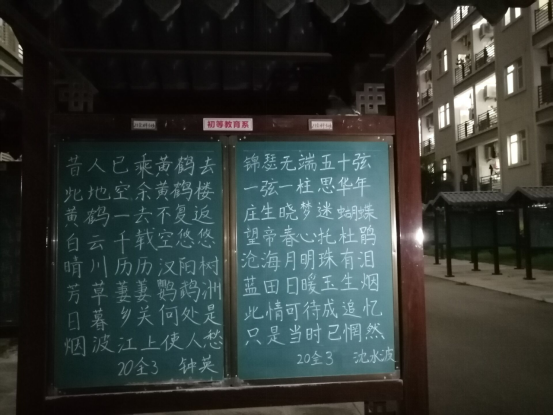 初等教育系
昔人已乘黄鹤去
此地空余黄鹤楼
黄鹤一去不复返
白云千载空悠悠
晴川历历汉阳树
芳草萋萋鹦鹉洲
日暮乡关何处是
烟波江上使人愁
20全3 钟英
锦瑟无端五十弦
一弦一柱思华年
庄生晓梦迷蝴蝶
望帝春心托杜鹃
沧海月明珠有泪
蓝田日暖玉生烟
此情可待成追忆
只是当时已惘然
20全3 沈水波